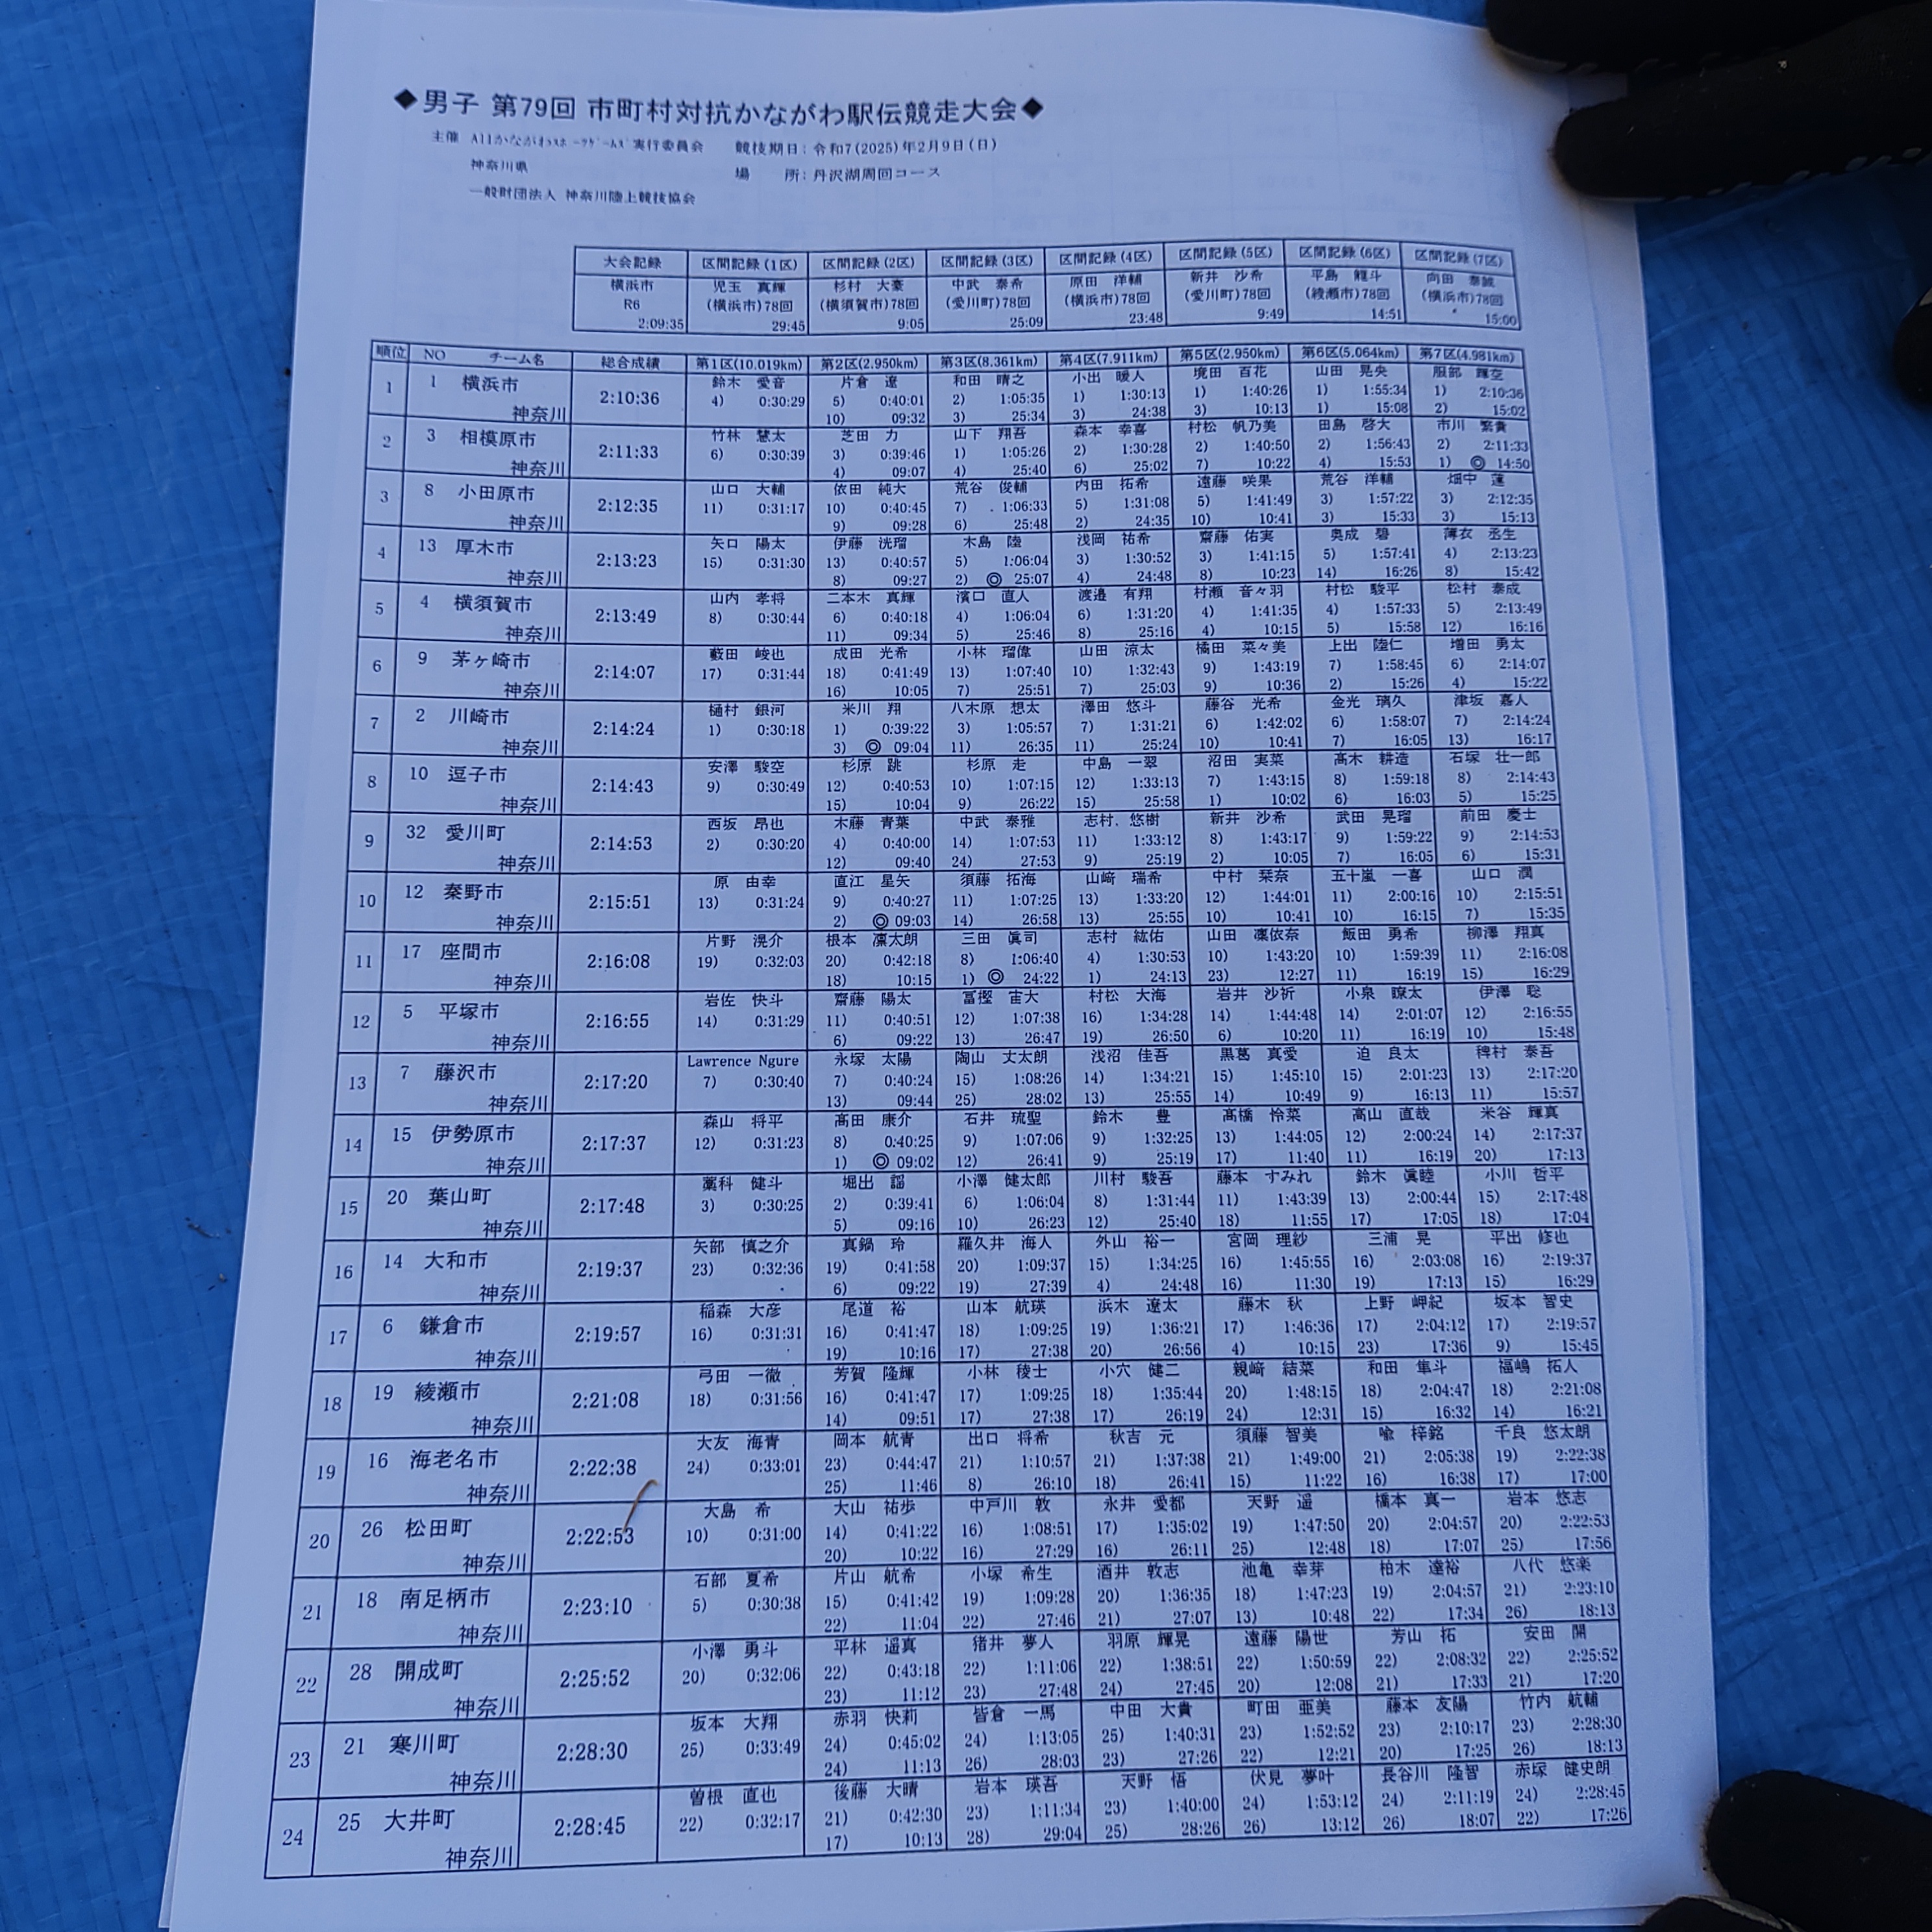 ◆男子 第79回 市町村対抗かながわ駅伝競走大会◆
主催 Allかながわｽﾎﾟｰﾂｹﾞｰﾑｽﾞ実行委員会 競技期日：令和7(2025)年2月9日(日)
神奈川県 場 所：丹沢湖周回コース
一般財団法人 神奈川陸上競技協会
大会記録 区間記録(1区) 区間記録(2区) 区間記録(3区) 区間記録(4区) 区間記録(5区) 区間記録(6区) 区間記録(7区)
横浜市 児玉 真輝 杉村 大豪 中武 泰希 原田 洋輔 新井 沙希 平島 龍斗 向田 泰誠
R6 (横浜市)78回 (横須賀市)78回 (愛川町)78回 (横浜市)78回 (愛川町)78回 (綾瀬市)78回 (横浜市)78回
2:09:35 29:45 9:05 25:09 23:48 9:49 14:51 15:00
順位 NO チーム名 総合成績 第1区(10.019km) 第2区(2.950km) 第3区(8.361km) 第4区(7.911km) 第5区(2.950km) 第6区(5.064km) 第7区(4.981km)
鈴木 愛音 片倉 遼 和田 晴之 小出 暖人 境田 百花 山田 晃央 服部 輝空
1 1 横浜市 2:10:36 4) 0:30:29 5) 0:40:01 2) 1:05:35 1) 1:30:13 1) 1:40:26 1) 1:55:34 1) 2:10:36
神奈川 10) 09:32 3) 25:34 3) 24:38 3) 10:13 1) 15:08 2) 15:02
竹林 慧太 芝田 力 山下 翔吾 森本 幸喜 村松 帆乃美 田島 啓大 市川 繁貴
2 3 相模原市 2:11:33 6) 0:30:39 3) 0:39:46 1) 1:05:26 2) 1:30:28 2) 1:40:50 2) 1:56:43 2) 2:11:33
神奈川 4) 09:07 4) 25:40 6) 25:02 7) 10:22 4) 15:53 1) ◎ 14:50
山口 大輔 依田 純大 荒谷 俊輔 内田 拓希 遠藤 咲果 荒谷 洋輔 畑中 蓮
3 8 小田原市 2:12:35 11) 0:31:17 10) 0:40:45 7) 1:06:33 5) 1:31:08 5) 1:41:49 3) 1:57:22 3) 2:12:35
神奈川 9) 09:28 6) 25:48 2) 24:35 10) 10:41 3) 15:33 3) 15:13
矢口 陽太 伊藤 洸瑠 木島 陸 浅岡 祐希 齋藤 佑実 奥成 碧 薄衣 丞生
4 13 厚木市 2:13:23 15) 0:31:30 13) 0:40:57 5) 1:06:04 3) 1:30:52 3) 1:41:15 5) 1:57:41 4) 2:13:23
神奈川 8) 09:27 2) ◎ 25:07 4) 24:48 8) 10:23 14) 16:26 8) 15:42
山内 孝将 二本木 真輝 濱口 直人 渡邉 有翔 村瀬 音々羽 村松 駿平 松村 泰成
5 4 横須賀市 2:13:49 8) 0:30:44 6) 0:40:18 4) 1:06:04 6) 1:31:20 4) 1:41:35 4) 1:57:33 5) 2:13:49
神奈川 11) 09:34 5) 25:46 8) 25:16 4) 10:15 5) 15:58 12) 16:16
藪田 崚也 成田 光希 小林 瑠偉 山田 涼太 橘田 菜々美 上出 陸仁 増田 勇太
6 9 茅ヶ崎市 2:14:07 17) 0:31:44 18) 0:41:49 13) 1:07:40 10) 1:32:43 9) 1:43:19 7) 1:58:45 6) 2:14:07
神奈川 16) 10:05 7) 25:51 7) 25:03 9) 10:36 2) 15:26 4) 15:22
樋村 銀河 米川 翔 八木原 想太 澤田 悠斗 藤谷 光希 金光 璃久 津坂 嘉人
7 2 川崎市 2:14:24 1) 0:30:18 1) 0:39:22 3) 1:05:57 7) 1:31:21 6) 1:42:02 6) 1:58:07 7) 2:14:24
神奈川 3) ◎ 09:04 11) 26:35 11) 25:24 10) 10:41 7) 16:05 13) 16:17
安澤 駿空 杉原 跳 杉原 走 中島 一翠 沼田 実菜 髙木 耕造 石塚 壮一郎
8 10 逗子市 2:14:43 9) 0:30:49 12) 0:40:53 10) 1:07:15 12) 1:33:13 7) 1:43:15 8) 1:59:18 8) 2:14:43
神奈川 15) 10:04 9) 26:22 15) 25:58 1) 10:02 6) 16:03 5) 15:25
西坂 昂也 木藤 青葉 中武 泰雅 志村 悠樹 新井 沙希 武田 晃瑠 前田 慶士
9 32 愛川町 2:14:53 2) 0:30:20 4) 0:40:00 14) 1:07:53 11) 1:33:12 8) 1:43:17 9) 1:59:22 9) 2:14:53
神奈川 12) 09:40 24) 27:53 9) 25:19 2) 10:05 7) 16:05 6) 15:31
原 由幸 直江 星矢 須藤 拓海 山﨑 瑞希 中村 栞奈 五十嵐 一喜 山口 潤
10 12 秦野市 2:15:51 13) 0:31:24 9) 0:40:27 11) 1:07:25 13) 1:33:20 12) 1:44:01 11) 2:00:16 10) 2:15:51
神奈川 2) ◎ 09:03 14) 26:58 13) 25:55 10) 10:41 10) 16:15 7) 15:35
片野 滉介 根本 凛太朗 三田 眞司 志村 紘佑 山田 凜依奈 飯田 勇希 柳澤 翔真
11 17 座間市 2:16:08 19) 0:32:03 20) 0:42:18 8) 1:06:40 4) 1:30:53 10) 1:43:20 10) 1:59:39 11) 2:16:08
神奈川 18) 10:15 1) ◎ 24:22 1) 24:13 23) 12:27 11) 16:19 15) 16:29
岩佐 快斗 齋藤 陽太 冨樫 宙大 村松 大海 岩井 沙祈 小泉 瞭太 伊澤 聡
12 5 平塚市 2:16:55 14) 0:31:29 11) 0:40:51 12) 1:07:38 16) 1:34:28 14) 1:44:48 14) 2:01:07 12) 2:16:55
神奈川 6) 09:22 13) 26:47 19) 26:50 6) 10:20 11) 16:19 10) 15:48
Lawrence Ngure 永塚 太陽 陶山 丈太朗 浅沼 佳吾 黒葛 真愛 迫 良太 稗村 泰吾
13 7 藤沢市 2:17:20 7) 0:30:40 7) 0:40:24 15) 1:08:26 14) 1:34:21 15) 1:45:10 15) 2:01:23 13) 2:17:20
神奈川 13) 09:44 25) 28:02 13) 25:55 14) 10:49 9) 16:13 11) 15:57
森山 将平 髙田 康介 石井 琉聖 鈴木 豊 髙橋 怜菜 高山 直哉 米谷 輝真
14 15 伊勢原市 2:17:37 12) 0:31:23 8) 0:40:25 9) 1:07:06 9) 1:32:25 13) 1:44:05 12) 2:00:24 14) 2:17:37
神奈川 1) ◎ 09:02 12) 26:41 9) 25:19 17) 11:40 11) 16:19 20) 17:13
藁科 健斗 堀出 謡 小澤 健太郎 川村 駿吾 藤本 すみれ 鈴木 眞睦 小川 哲平
15 20 葉山町 2:17:48 3) 0:30:25 2) 0:39:41 6) 1:06:04 8) 1:31:44 11) 1:43:39 13) 2:00:44 15) 2:17:48
神奈川 5) 09:16 10) 26:23 12) 25:40 18) 11:55 17) 17:05 18) 17:04
矢部 慎之介 真鍋 玲 羅久井 海人 外山 裕一 宮岡 理紗 三浦 晃 平出 修也
16 14 大和市 2:19:37 23) 0:32:36 19) 0:41:58 20) 1:09:37 15) 1:34:25 16) 1:45:55 16) 2:03:08 16) 2:19:37
神奈川 6) 09:22 19) 27:39 4) 24:48 16) 11:30 19) 17:13 15) 16:29
稲森 大彦 尾道 裕 山本 航瑛 浜木 遼太 藤木 秋 上野 岬紀 坂本 智史
17 6 鎌倉市 2:19:57 16) 0:31:31 16) 0:41:47 18) 1:09:25 19) 1:36:21 17) 1:46:36 17) 2:04:12 17) 2:19:57
神奈川 19) 10:16 17) 27:38 20) 26:56 4) 10:15 23) 17:36 9) 15:45
弓田 一徹 芳賀 隆輝 小林 稜士 小穴 健二 親﨑 結菜 和田 隼斗 福嶋 拓人
18 19 綾瀬市 2:21:08 18) 0:31:56 16) 0:41:47 17) 1:09:25 18) 1:35:44 20) 1:48:15 18) 2:04:47 18) 2:21:08
神奈川 14) 09:51 17) 27:38 17) 26:19 24) 12:31 15) 16:32 14) 16:21
大友 海青 岡本 航青 出口 将希 秋吉 元 須藤 智美 喩 梓銘 千良 悠太朗
19 16 海老名市 2:22:38 24) 0:33:01 23) 0:44:47 21) 1:10:57 21) 1:37:38 21) 1:49:00 21) 2:05:38 19) 2:22:38
神奈川 25) 11:46 8) 26:10 18) 26:41 15) 11:22 16) 16:38 17) 17:00
大島 希 大山 祐歩 中戸川 敦 永井 愛都 天野 遥 橋本 真一 岩本 悠志
20 26 松田町 2:22:53 10) 0:31:00 14) 0:41:22 16) 1:08:51 17) 1:35:02 19) 1:47:50 20) 2:04:57 20) 2:22:53
神奈川 20) 10:22 16) 27:29 16) 26:11 25) 12:48 18) 17:07 25) 17:56
石部 夏希 片山 航希 小塚 希生 酒井 敦志 池亀 幸芽 柏木 達裕 八代 悠楽
21 18 南足柄市 2:23:10 5) 0:30:38 15) 0:41:42 19) 1:09:28 20) 1:36:35 18) 1:47:23 19) 2:04:57 21) 2:23:10
神奈川 22) 11:04 22) 27:46 21) 27:07 13) 10:48 22) 17:34 26) 18:13
小澤 勇斗 平林 遥真 猪井 夢人 羽原 輝晃 遠藤 陽世 芳山 拓 安田 開
22 28 開成町 2:25:52 20) 0:32:06 22) 0:43:18 22) 1:11:06 22) 1:38:51 22) 1:50:59 22) 2:08:32 22) 2:25:52
神奈川 23) 11:12 23) 27:48 24) 27:45 20) 12:08 21) 17:33 21) 17:20
坂本 大翔 赤羽 快莉 皆倉 一馬 中田 大貴 町田 亜美 藤本 友陽 竹内 航輔
23 21 寒川町 2:28:30 25) 0:33:49 24) 0:45:02 24) 1:13:05 25) 1:40:31 23) 1:52:52 23) 2:10:17 23) 2:28:30
神奈川 24) 11:13 26) 28:03 23) 27:26 22) 12:21 20) 17:25 26) 18:13
曽根 直也 後藤 大晴 岩本 瑛吾 天野 悟 伏見 夢叶 長谷川 隆智 赤塚 健史朗
24 25 大井町 2:28:45 22) 0:32:17 21) 0:42:30 23) 1:11:34 23) 1:40:00 24) 1:53:12 24) 2:11:19 24) 2:28:45
神奈川 17) 10:13 28) 29:04 25) 28:26 26) 13:12 26) 18:07 22) 17:26